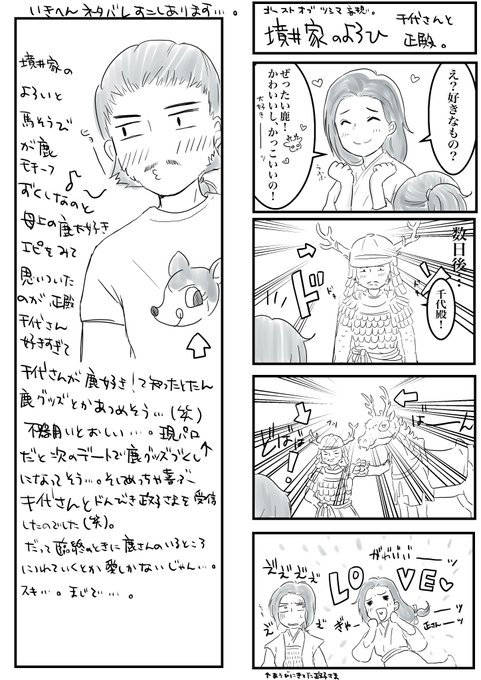 ゴーストオブツシマ妄想。
千代さんと
正殿。
境井家のよろい
え？好きなもの？
ぜったい鹿！
かわいいし、かっこいいの！
大好き
数日後…
千代殿！
ド
LOVE
かわいいーーッ
ぎゃーーーッ
正さんーーッ
ええぇぇぇ
いきへんネタバレすこしあります…。
境井家の
よろいと
馬そうび
が鹿
モチーフ
ずくしなのと
母上の鹿大好き
エピをみて
思いついた
のが正殿
千代さん
好きすぎて
千代さんが鹿好き！って知ったとたん
鹿グッズとかあつめそう…(笑)
不器用いとおしい…。現パロ
だと次のデートで鹿グッズづくし
になってそう…。そしてめっちゃ喜ぶ
千代さんとドン引き政子さまを受信
したのでした(笑)。
だって臨終のときに鹿さんのいるところ
につれていくとか愛しかないじゃん…。
スキ…。まじで…。